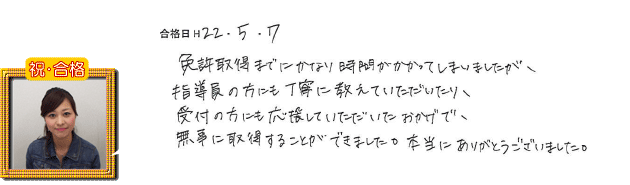 合格日 H22.5.7
祝・合格
免許取得までにかなり時間がかかってしまいましたが、
指導員の方にも丁寧に教えていただいたり、
受付の方にも応援していただいたおかげで、
無事に取得することができました。本当にありがとうございました。